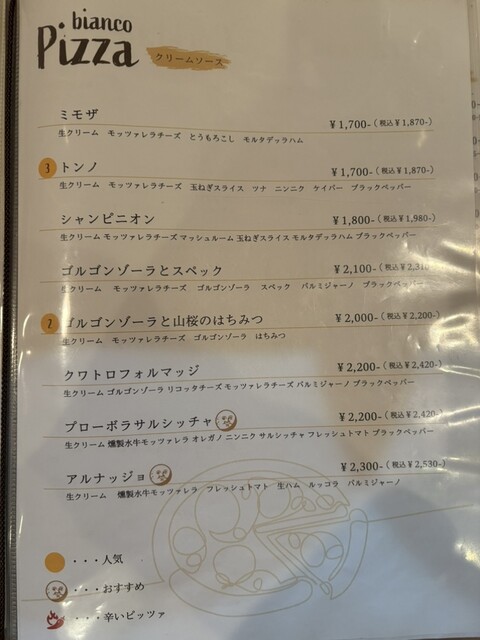 bianco
Pizza
クリームソース
ミモザ ¥1,700-(税込¥1,870-)
生クリーム モッツァレラチーズ とうもろこし モルタデッラハム
3 トンノ ¥1,700-(税込¥1,870-)
生クリーム モッツァレラチーズ 玉ねぎスライス ツナ ニンニク ケイパー ブラックペッパー
シャンピニオン ¥1,800-(税込¥1,980-)
生クリーム モッツァレラチーズ マッシュルーム 玉ねぎスライス モルタデッラハム ブラックペッパー
ゴルゴンゾーラとスペック ¥2,100-(税込¥2,310-
生クリーム モッツァレラチーズ ゴルゴンゾーラ スペック パルミジャーノ ブラックペッパー
2 ゴルゴンゾーラと山桜のはちみつ ¥2,000-(税込¥2,200-)
生クリーム モッツァレラチーズ ゴルゴンゾーラ はちみつ
クワトロフォルマッジ ¥2,200-(税込¥2,420-)
生クリーム ゴルゴンゾーラ リコッタチーズ モッツァレラチーズ パルミジャーノ ブラックペッパー
プローボラサルシッチャ ¥2,200-(税込¥2,420-)
生クリーム 燻製水牛モッツァレラ オレガノ ニンニク サルシッチャ フレッシュトマト ブラックペッパー
アルナッジョ ¥2,300-(税込¥2,530-)
生クリーム 燻製水牛モッツァレラ フレッシュトマト 生ハム ルッコラ パルミジャーノ
・・・人気
・・・おすすめ
・・・辛いピッツァ